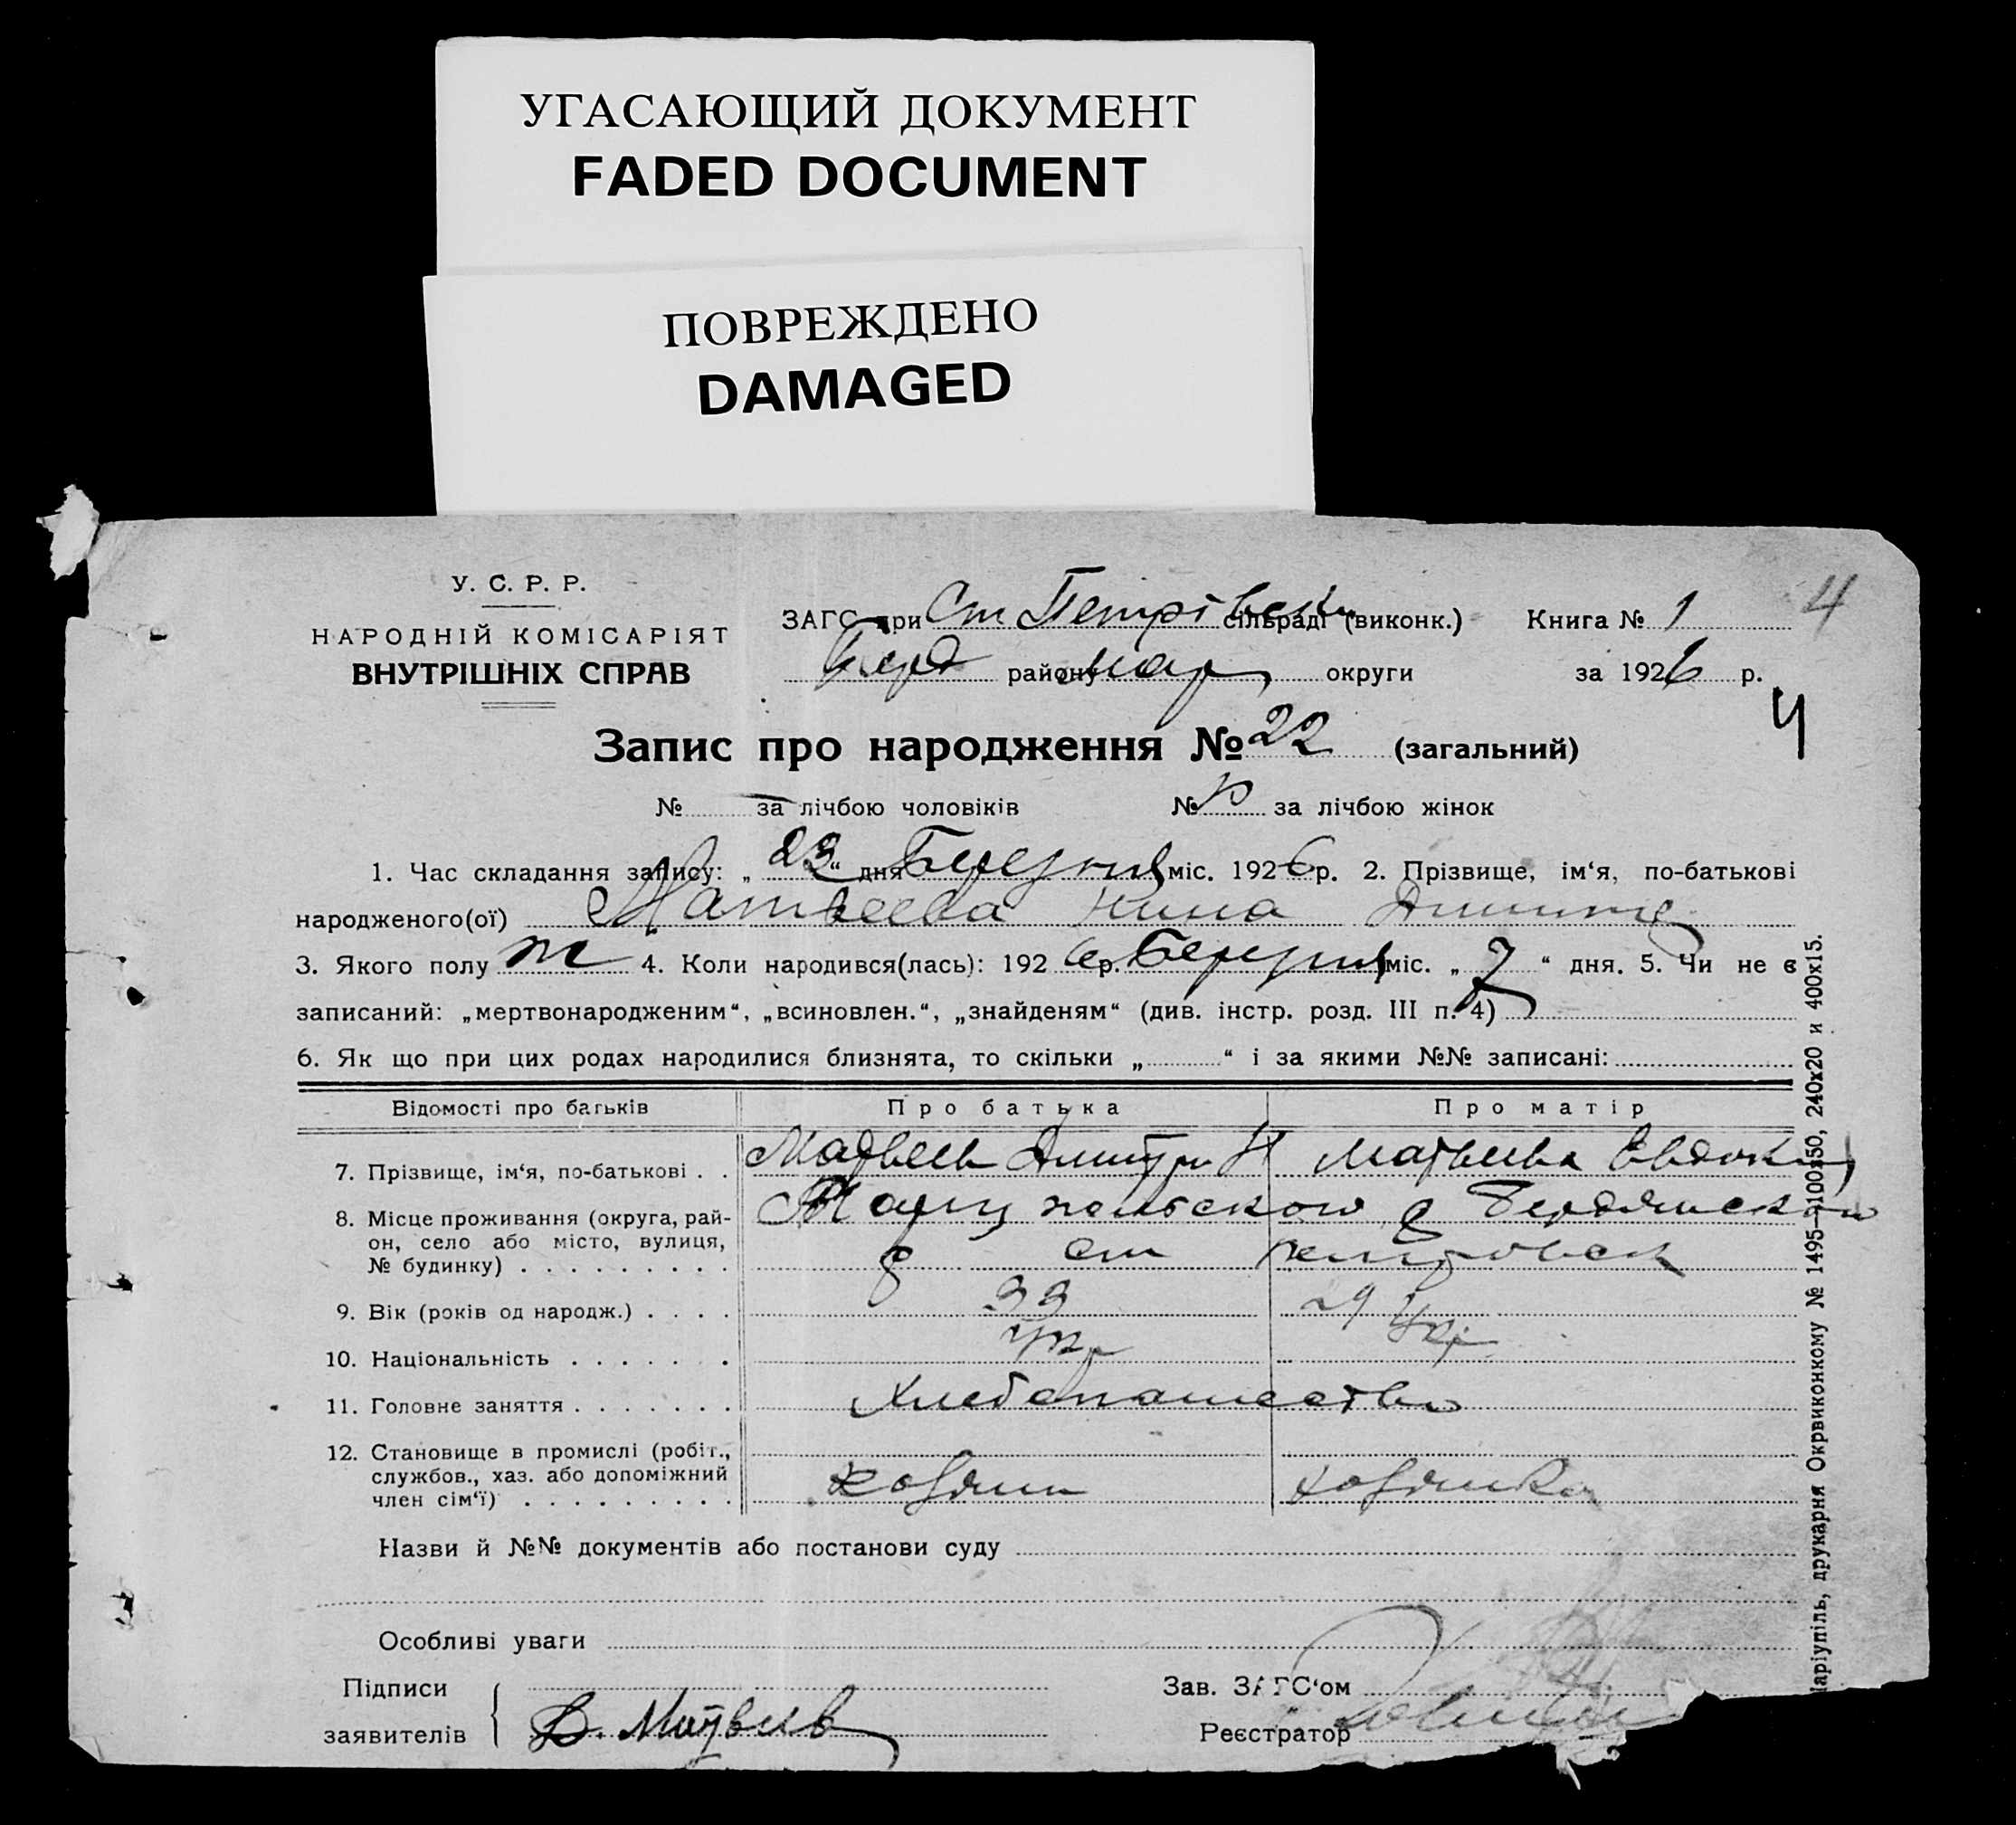 УГАСАЮЩИЙ ДОКУМЕНТ
FADED DOCUMENT
ПОВРЕЖДЕНО
DAMAGED
У. С. Р. Р.
НАРОДНІЙ КОМІСАРІЯТ
ВНУТРІШНІХ СПРАВ
ЗАГС при Ст Петрівськ сільраді (виконк.) Книга № 1 4
Берд району Мар округи за 1926 р.
4
Запис про народження № 22 (загальний)
№ за лічбою чоловіків № за лічбою жінок
1. Час складання запису: „ 23 “ дня Березня міс. 1926 р. 2. Прізвище, ім‘я, по-батькові
народженого(ої) Матвеева Нина Дмитр
3. Якого полу ж 4. Коли народився(лась): 1926 р. Березня міс. „ 7 “ дня. 5. Чи не є
записаний: „мертвонародженим“, „всиновлен.“, „знайденям“ (див. інстр. розд. III п. 4)
6. Як що при цих родах народилися близнята, то скільки „ “ і за якими №№ записані:
Відомості про батьків Про батька Про матір
7. Прізвище, ім‘я, по-батькові . . Матвеев Дмитр Н Матвеева Евдоки
8. Місце проживання (округа, рай-
он, село або місто, вулиця,
№ будинку) . . . . . . . . .
Мариупольского р Бердянского
с ст Петровск
9. Вік (років од народж.) . . . . 33 29
10. Національність . . . . . . . Укр Укр
11. Головне заняття . . . . . . . Хлебопашество
12. Становище в промислі (робіт.,
службов., хаз. або допоміжний
член сім‘ї) . . . . . . . . .
хозяин хозяйка
Назви й №№ документів або постанови суду
Особливі уваги
Підписи
заявителів
Д. Матвеев
Зав. ЗАГС‘ом
Реєстратор
аріупіль, друкарня Окрвиконкому № 1495—100х50, 240х20 и 400х15.